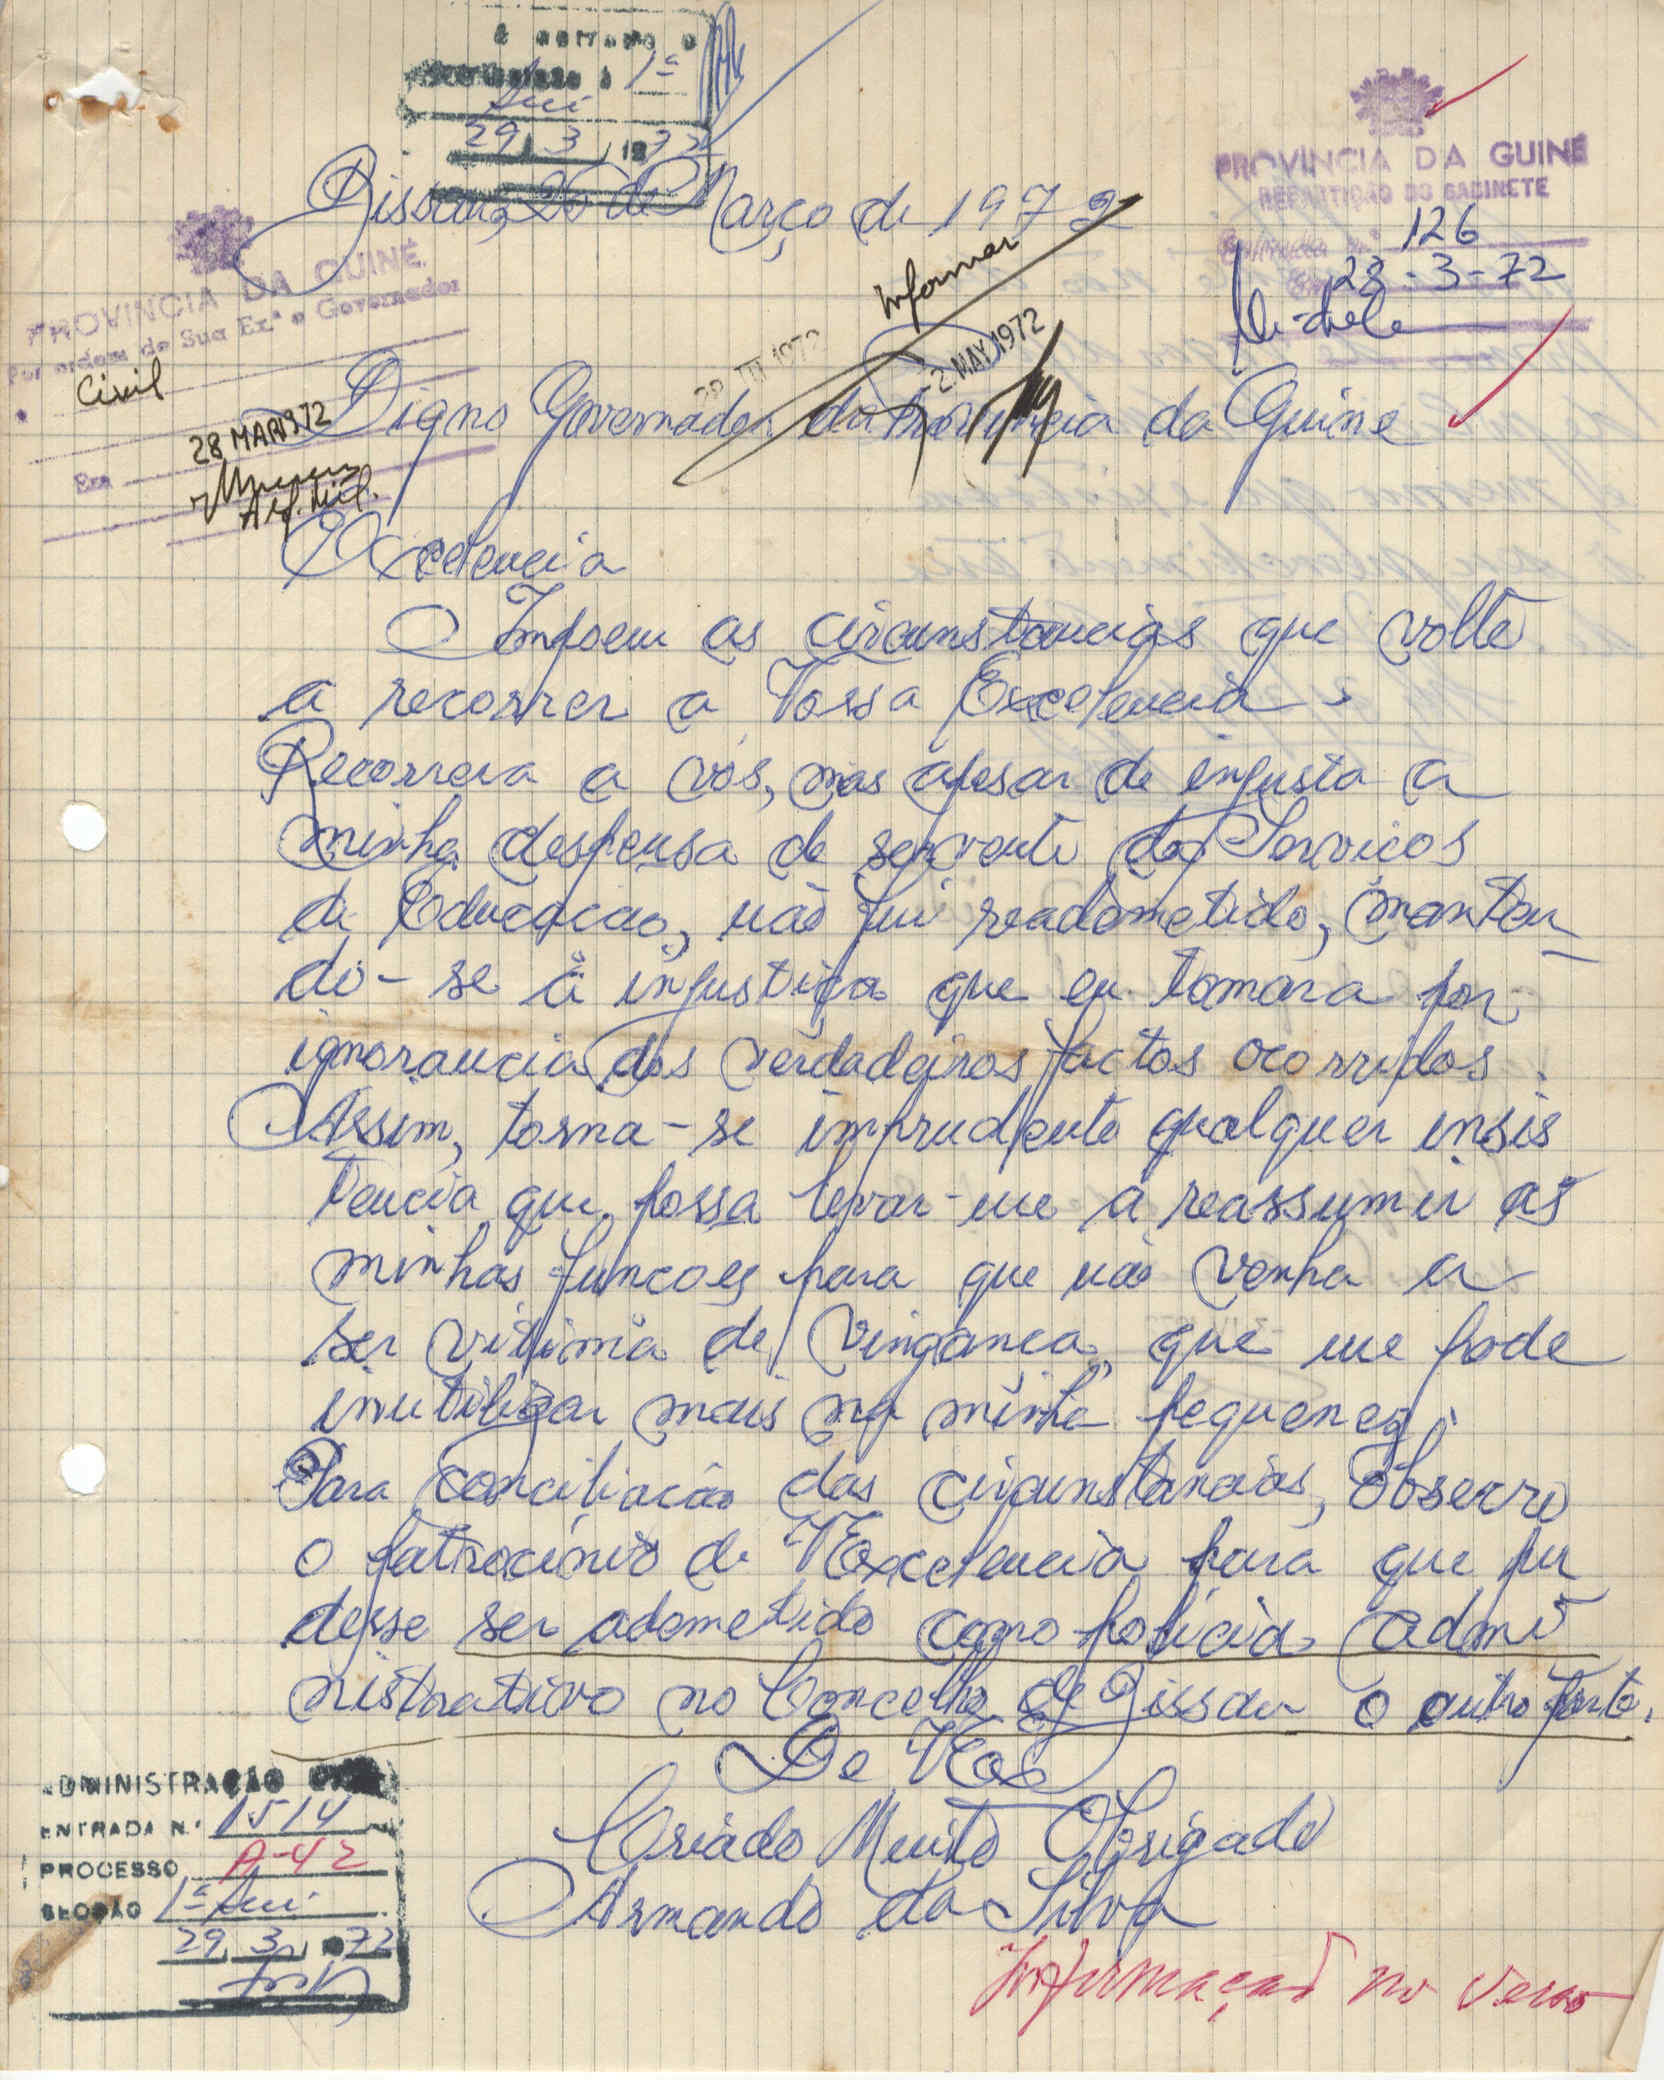 1ª
29 3 1972
PROVINCIA DA GUINÉ
REPARTIÇÃO DO GABINETE
Entrada nº 126
28-3-72
Bissau, 26 de Março de 1972
PROVINCIA DA GUINÉ
Por ordem de Sua Exª o Governador
Civil
Em 28 MAR 1972
Alf. Mil.
Informar
29 III 1972
-2 MAY 1972
Digno Governador da Provincia da Guine
Excelencia
Impoem as circunstancias que volte
a recorrer a Vossa Excelencia.
Recorrera a vós, mas apesar de injusta a
minha despensa de servente dos Servicos
de Educacao, não fui readometido, manten
do-se a injustiça que eu tomara por
ignorancia dos verdadeiros factos ocorridos.
Assim, torna-se imprudente qualquer insis
tencia que possa levar-me a reassumir as
minhas funcoes para que não venha a
ser vitima de vingança que me pode
inutilizar mais na minha pequenez.
Para conciliacão das circunstancias, observo
o patrocinio de VExcelencia para que pu
desse ser adometido como policia admi
nistrativo no Concelho de Bissau o outra parte.
De VExª
Criado Muito Obrigado
Armando da Silva
ADMINISTRAÇÃO
ENTRADA N.º 1514
PROCESSO A-42
SECÇÃO 1ª
29 3 1972
Informação no verso